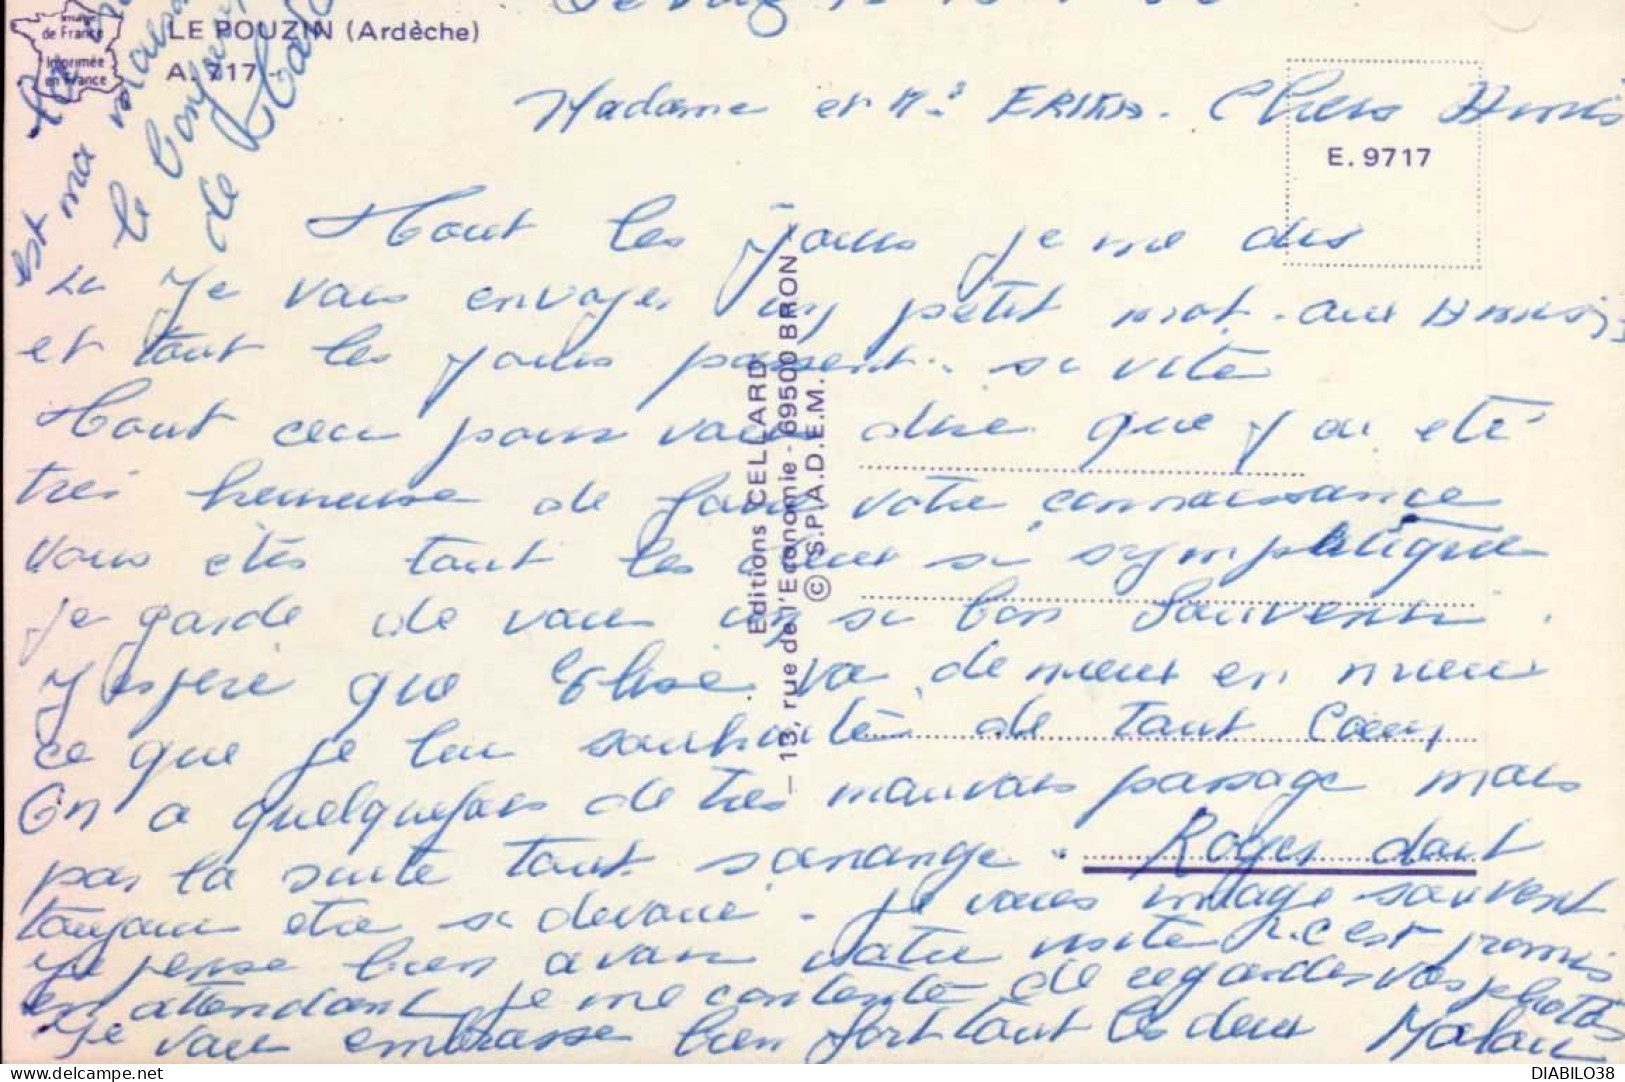 Image
de France
Imprimée
en France
LE POUZIN (Ardèche)
A. 717
est ma
le
de
Madame et Mr Chers Amis
E. 9717
Tout les jours je me dis
Je vais envoyer un petit mot. aux Amis
et tout les jours passent. si vite
Tout ceci pour vous dire que j'ai eté
très heureuse de faire votre connaissance
vous etes tout les deux si symphatique
je garde de vous un si bon Souvenir.
J'espère que Elise va de mieux en mieux
ce que je lui souhaite de tout Coeur,
On a quelquefois de très mauvais passage mais
par la suite tout s'arrange. Roger doit
toujours etre si devoué. je vous image souvent
Je pense bien avoir votre visite c'est promis
en attendant je me contente de regarder vos photos
Je vous embrasse bien fort tout les deux
Editions CELLARD
— 13, rue de l'Economie - 69500 BRON
© S.P.A.D.E.M.
DIABILO38